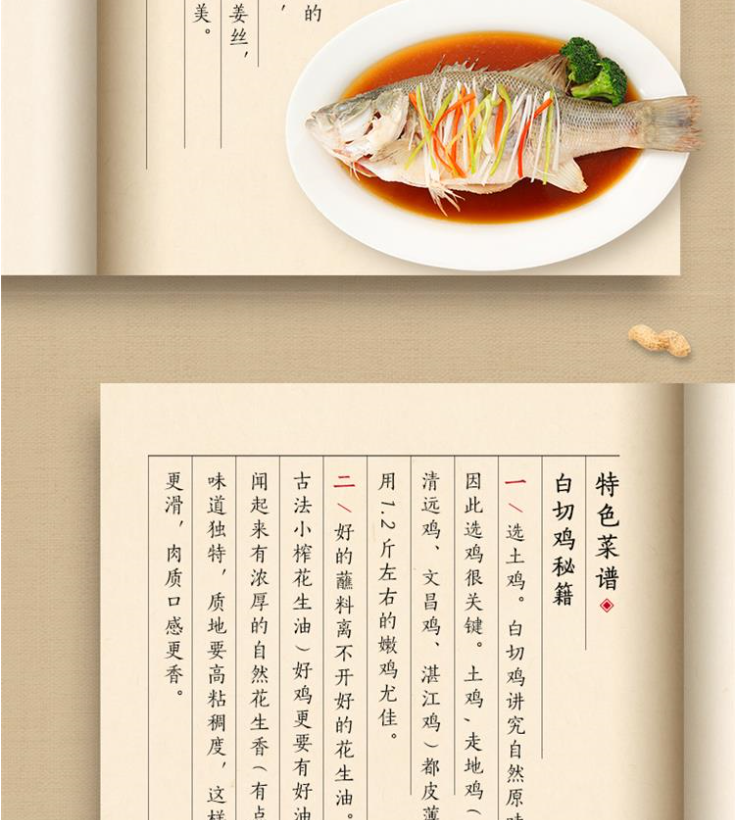 的
，
姜丝，
美。
特色菜谱
白切鸡秘籍
一/选土鸡。白切鸡讲究自然原味
因此选鸡很关键。土鸡、走地鸡（
清远鸡、文昌鸡、湛江鸡）都皮薄
用1.2斤左右的嫩鸡尤佳。
二/好的蘸料离不开好的花生油。
古法小榨花生油）好鸡更要有好油
闻起来有浓厚的自然花生香（有点
味道独特，质地要高粘稠度，这样
更滑，肉质口感更香。